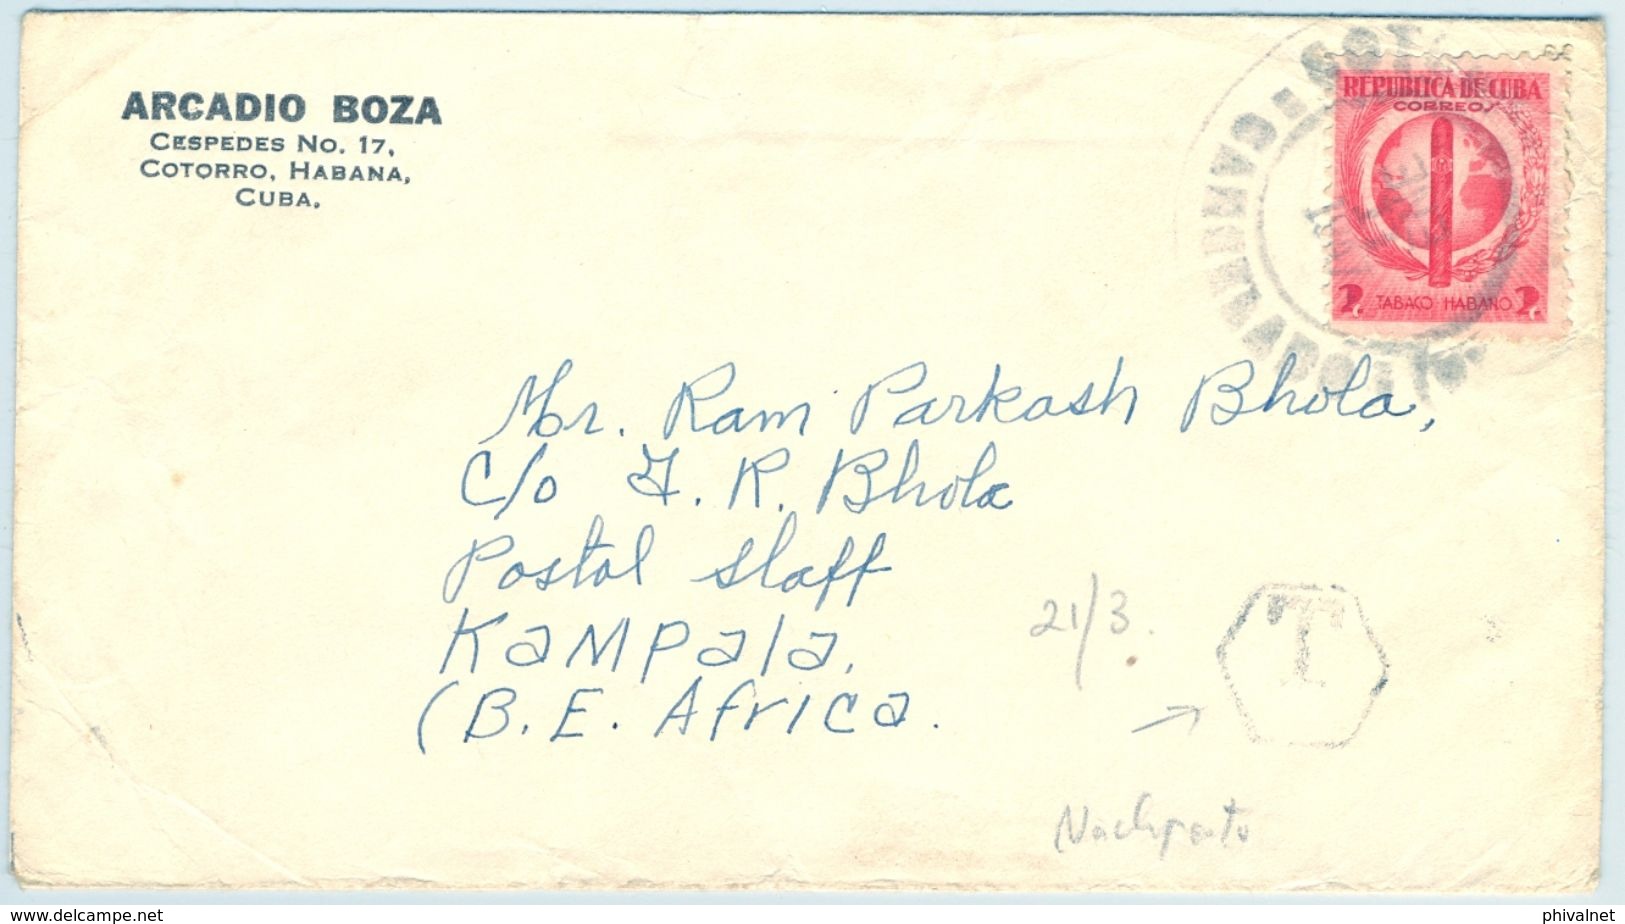 ARCADIO BOZA
CESPEDES NO. 17,
COTORRO, HABANA,
CUBA.
REPUBLICA DE CUBA
CORREOS
2 TABACO HABANO 2
Mr. Ram Parkash Bhola,
c/o F. R. Bhola
Postal Staff
Kampala.
(B. E. Africa.
21/3.
T
Nachporto
www.delcampe.net
phivalnet